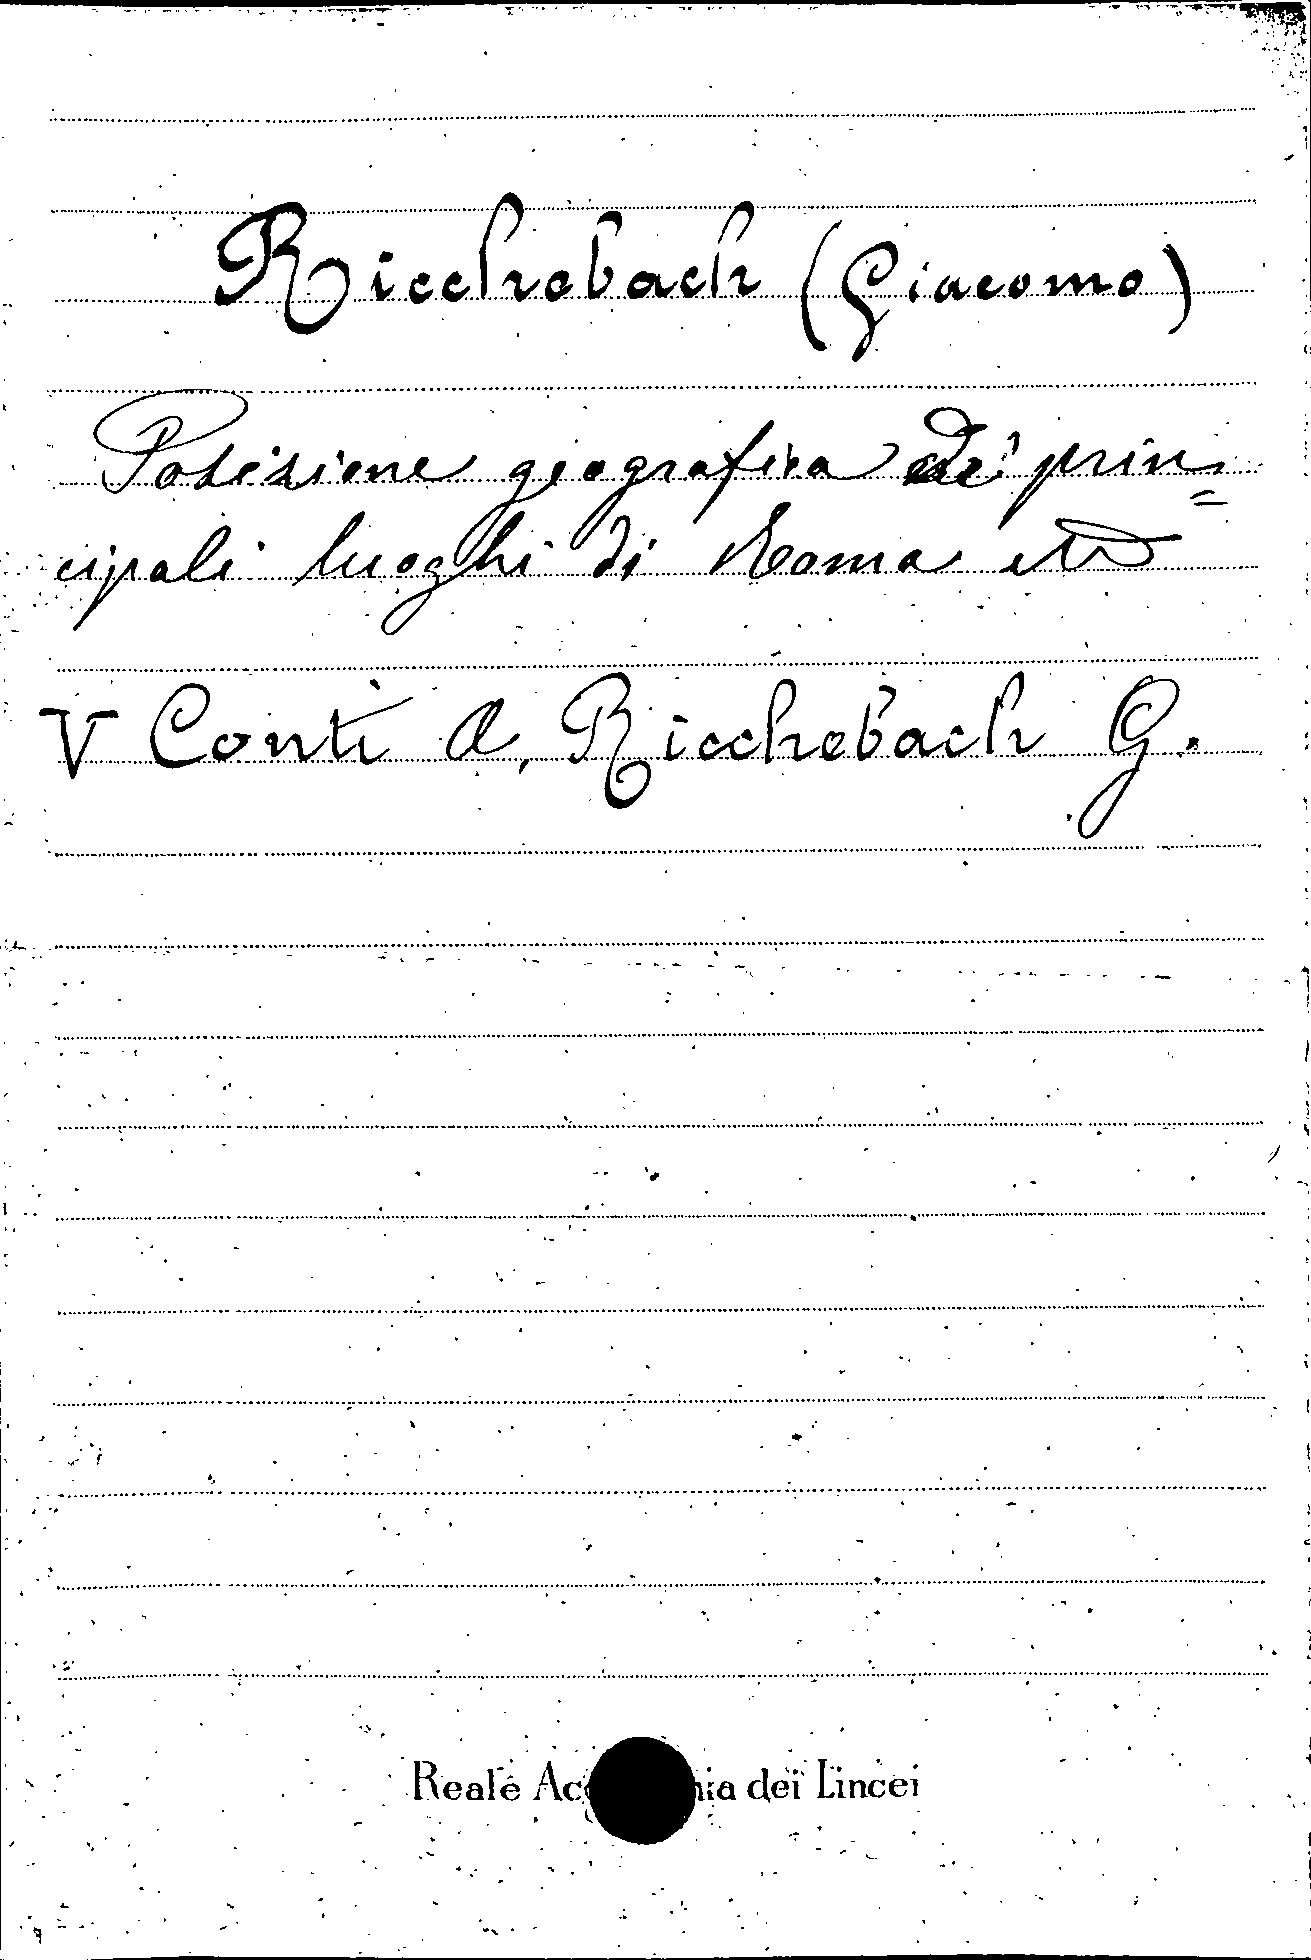 Ricchebach (Giacomo)
Posizione geografica de' prin=
cipali luoghi di Roma etc
V Conti A, Ricchebach G.
Reale Ac mia dei Lincei